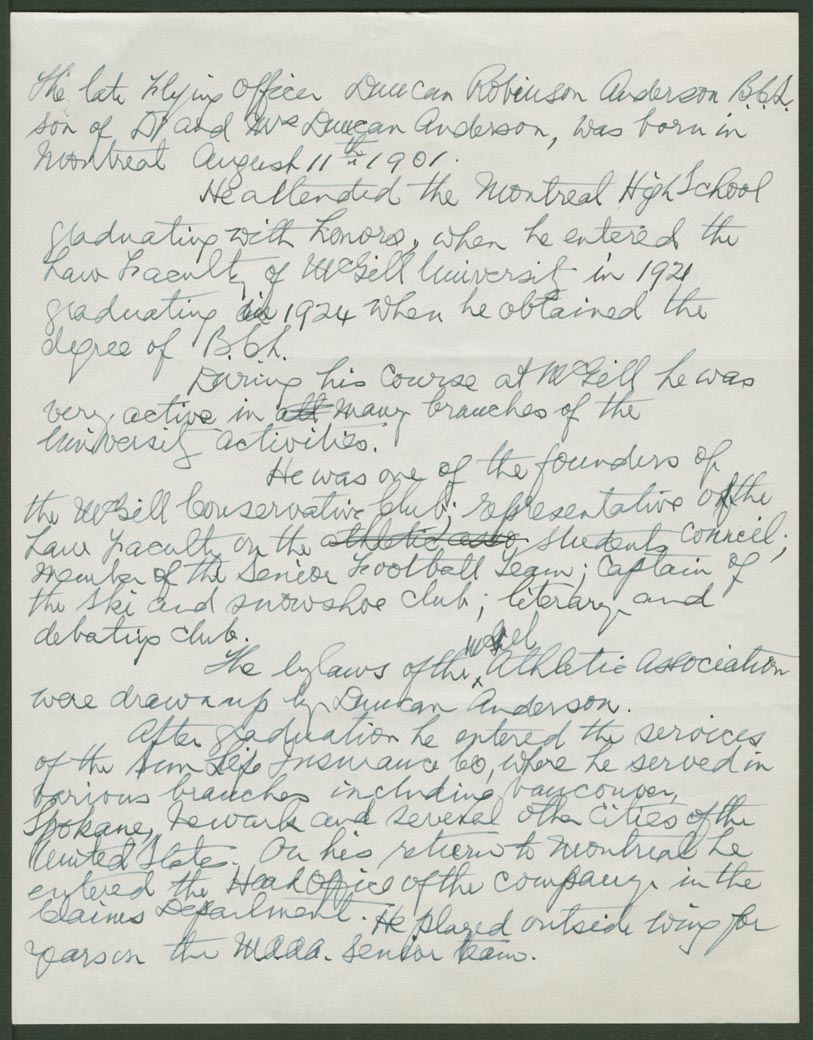 The late Flying Officer Duncan Robinson Anderson B.C.L.
son of Dr and Mrs Duncan Anderson, was born in
Montreal August 11th 1901.
He attended the Montreal High School
graduating with honors, when he entered the
Law Faculty of McGill University in 1921
graduating in 1924 when he obtained the
degree of B.C.L.
During his course at McGill he was
very active in all many branches of the
University activities.
He was one of the founders of
the McGill Conservative Club; representative of the
Law Faculty on the athletic asso students Council;
Member of the Senior Football Team; Captain of
the Ski and snowshoe club; literary and
debating club.
McGill
The bylaws of the Athletic Association
were drawn up by Duncan Anderson.
After graduation he entered the services
of the Sun Life Insurance Co, where he served in
various branches including Vancouver,
Spokane, Newark and several other Cities of the
United States. On his return to Montreal he
entered the Head Office of the company in the
Claims Department. He played outside wing for
years on the M.A.A.A. Senior team.